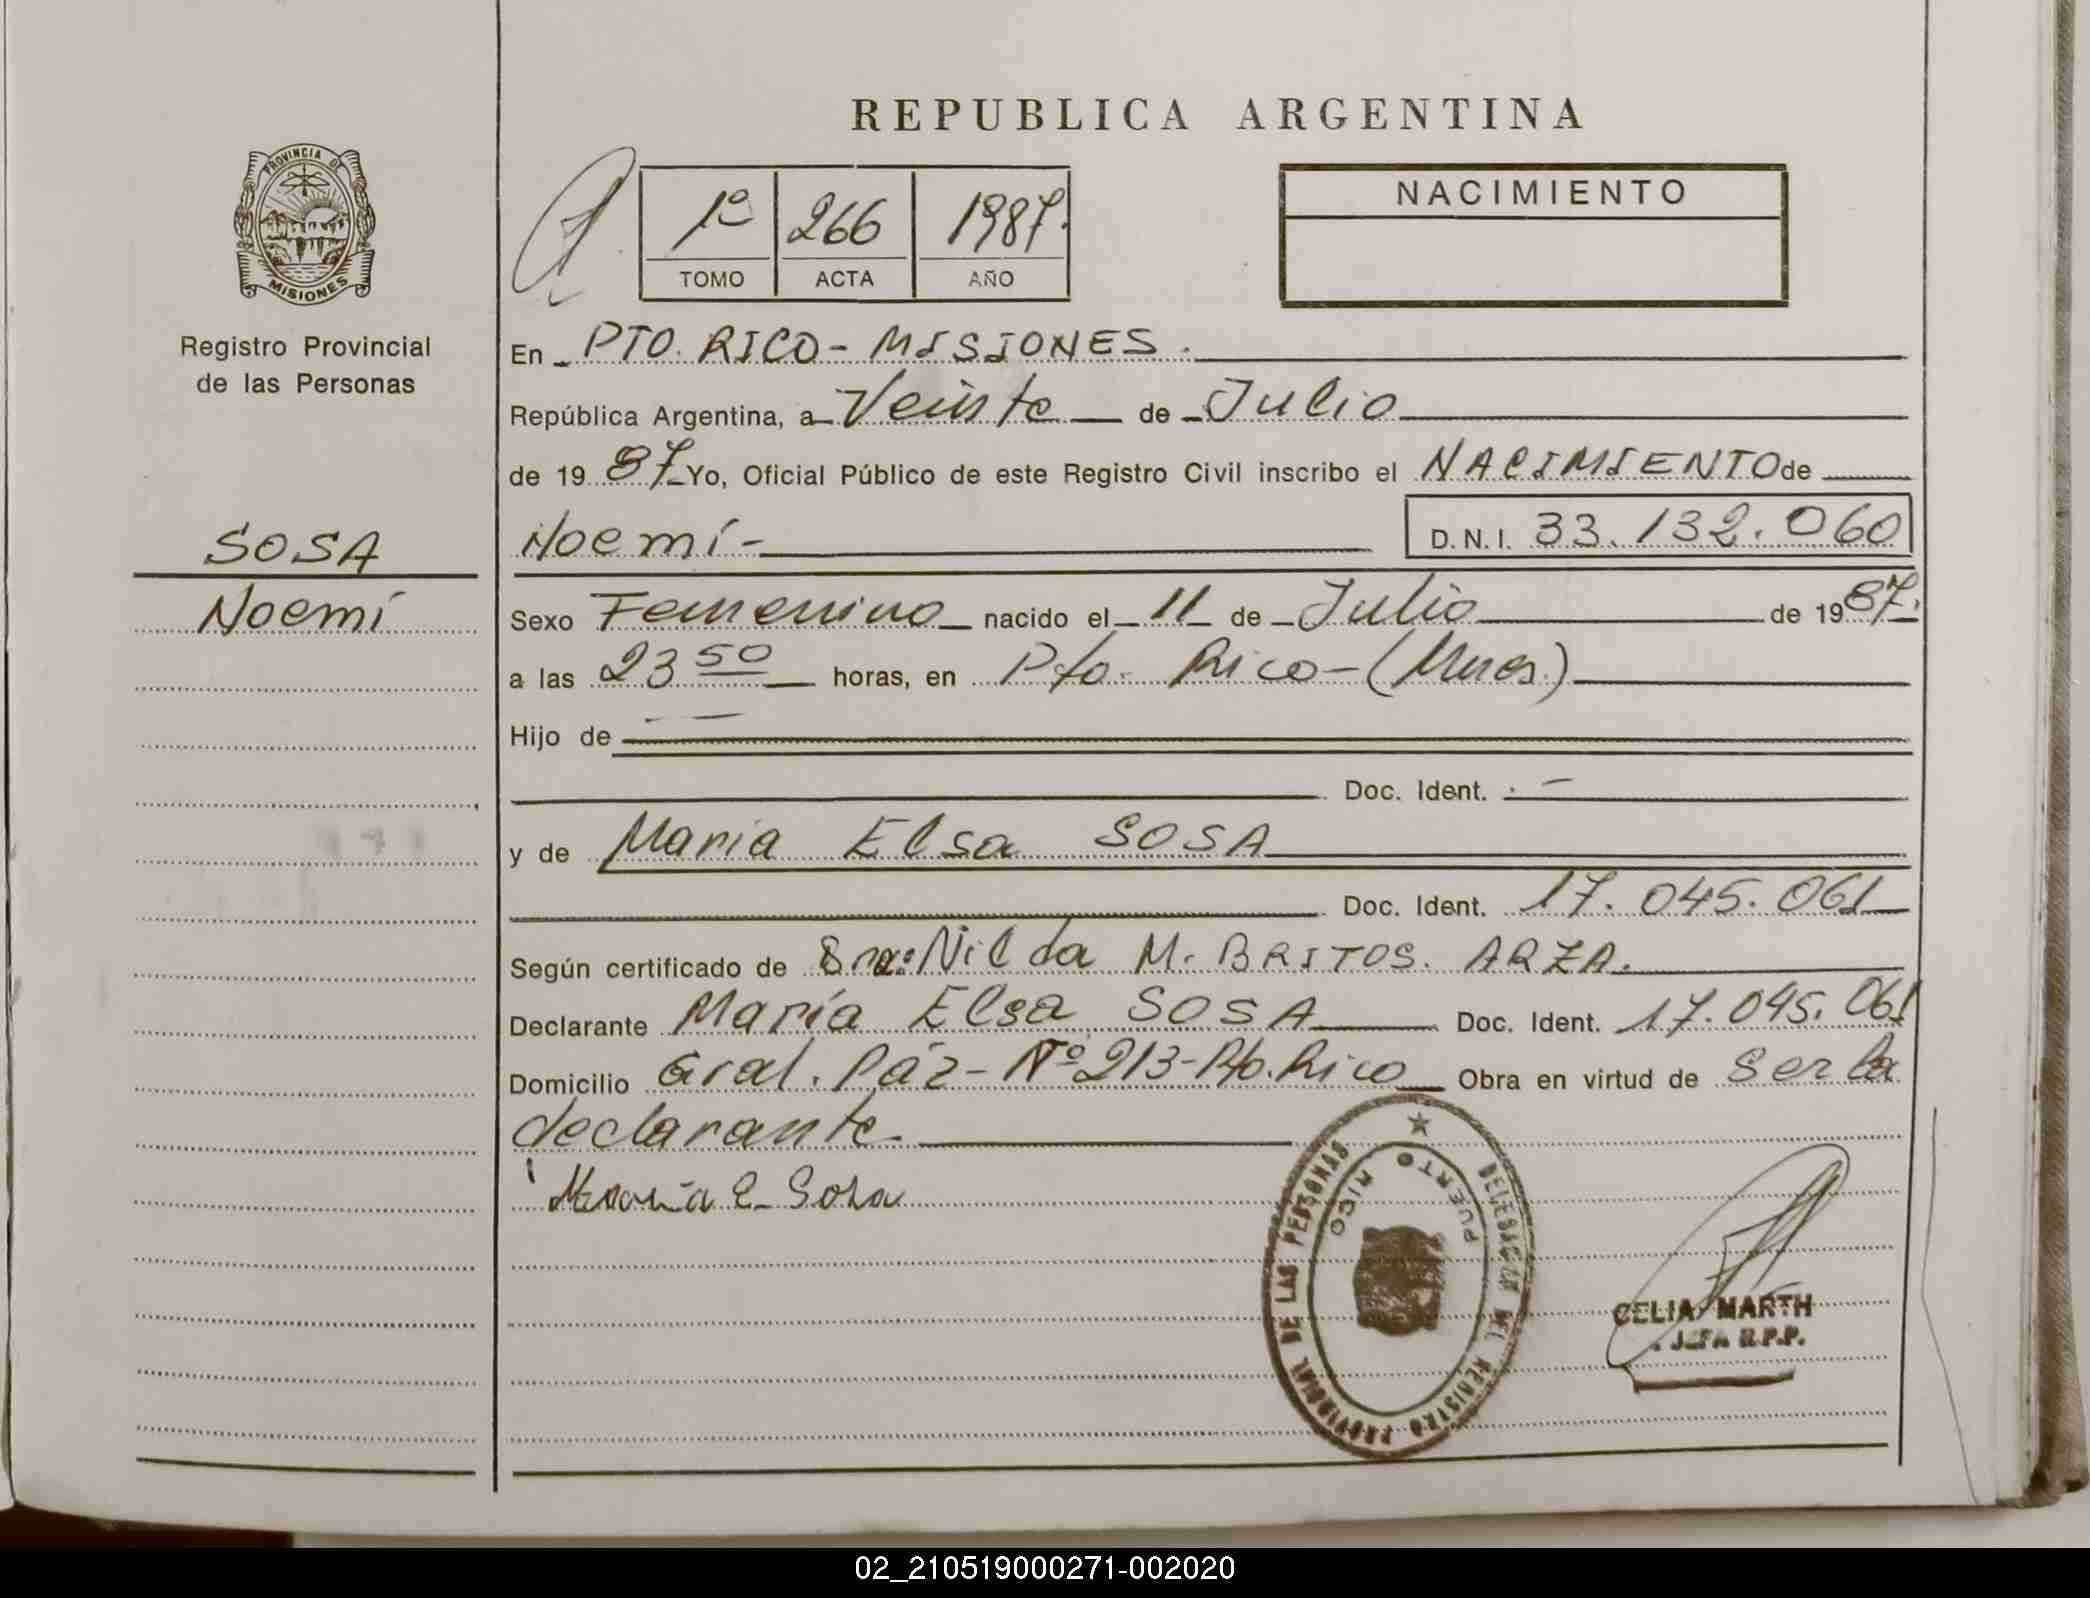 REPUBLICA ARGENTINA
PROVINCIA DE
MISIONES
Registro Provincial
de las Personas
1º 266 1987.
TOMO ACTA AÑO
NACIMIENTO
En PTO. RICO - MISIONES.
República Argentina, a Veinte de Julio
de 19 87 Yo, Oficial Público de este Registro Civil inscribo el NACIMIENTO de
SOSA
Noemí
Noemí- D.N.I. 33.132.060
Sexo Femenino nacido el 11 de Julio de 19 87.
a las 23 50 horas, en Pto. Rico - (Mnes.)
Hijo de
Doc. Ident. -
y de Maria Elsa SOSA
Doc. Ident. 17.045.061
Según certificado de Sra: Nilda M. BRITOS. ARZA.
Declarante María Elsa SOSA Doc. Ident. 17.045.061
Domicilio Gral. Páz - Nº 213 - Pto. Rico Obra en virtud de Ser la
declarante
Maria E. Sosa
DELEGACION DEL REGISTRO PROVINCIAL DE LAS PERSONAS
PUERTO RICO
CELIA MARTH
JEFA R.P.P.
02_210519000271-002020